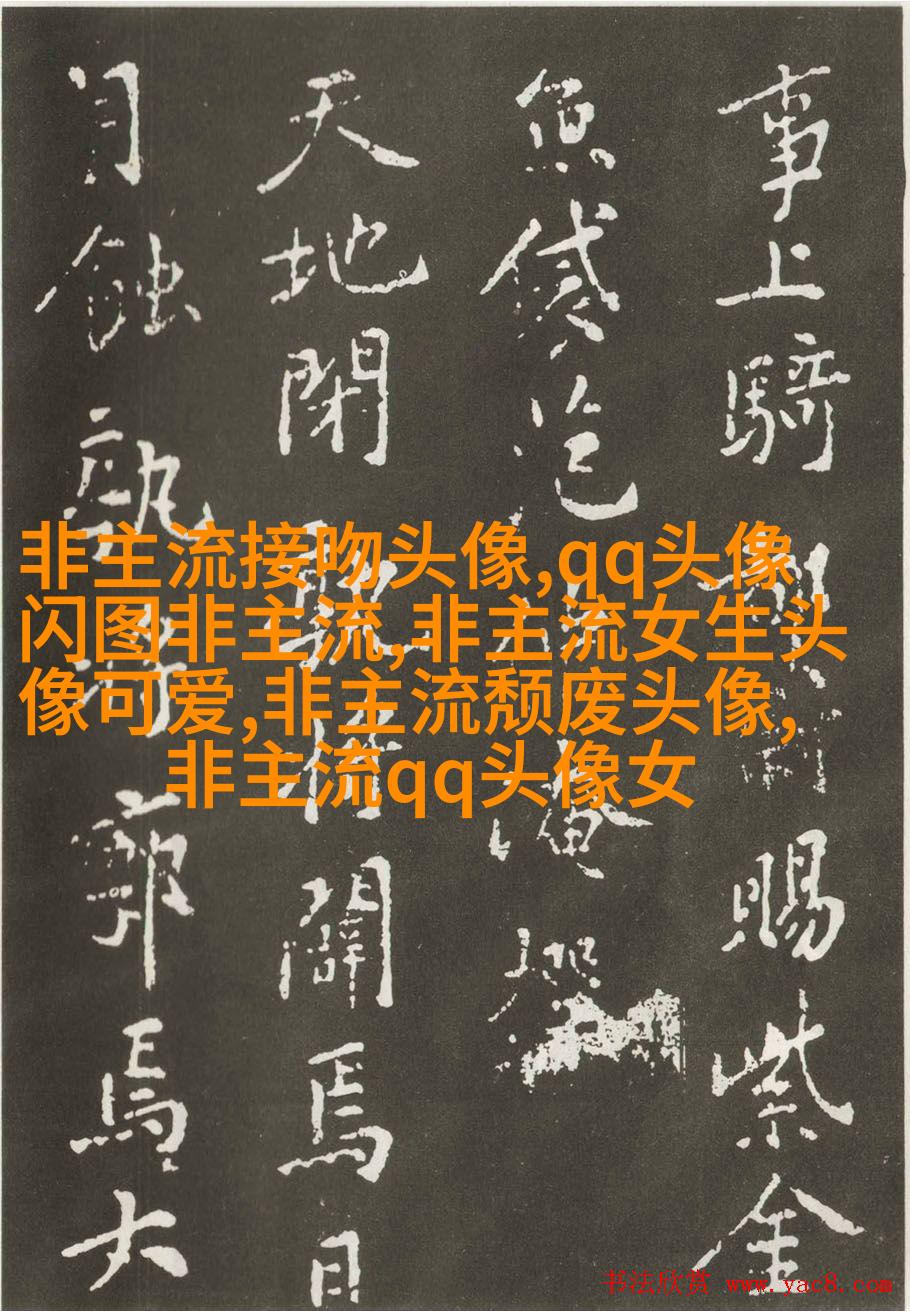 事上騎賜紫金
魚袋范
天地閉將闢焉日
月蝕孰廓焉大
非主流接吻头像,qq头像
闪图非主流,非主流女生头
像可爱,非主流颓废头像,
非主流qq头像女
书法欣赏 www.yac8.com